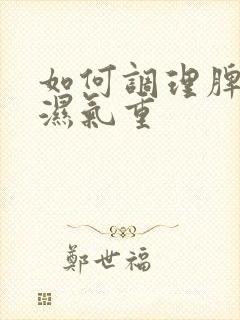 如何調理脾
濕氣重
鄭世福